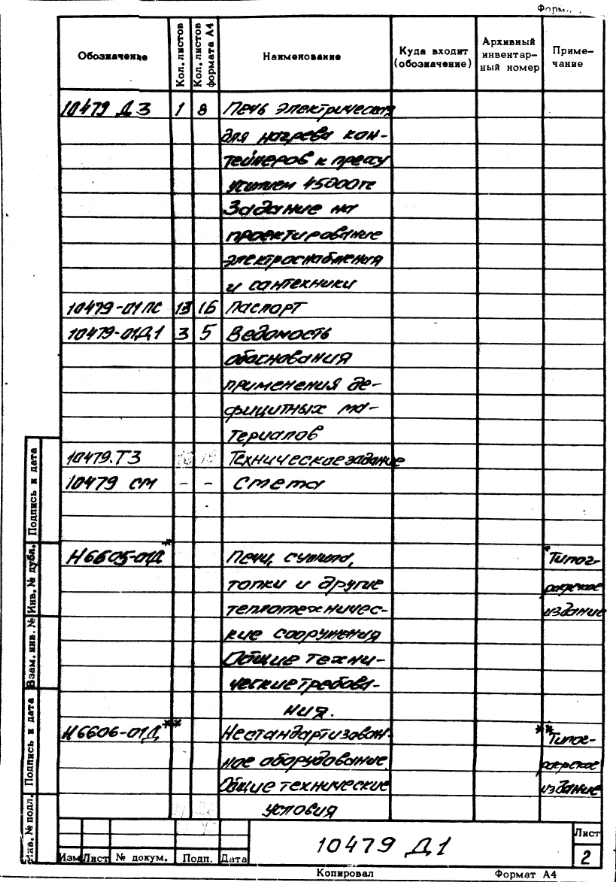 Форм
Обозначение Кол. листов Кол. листов формата А4 Наименование Куда входит (обозначение) Архивный инвентарный номер Примечание
10479 Д3 1 8 Печь электрическая
для нагрева кон-
тейнеров к прессу
усилием 15000тс
Задание на
проектирование
электроснабжения
и сантехники
10479-01 ПС 13 16 Паспорт
10479-01Д1 3 5 Ведомость
обоснования
применения де-
фицитных ма-
териалов
10479.ТЗ Техническое задание
10479 СМ - - Смета
Н6605-01Д* Печи, сушила, *Типог-
топки и другие рафское
теплотехничес- издание
кие сооружения
Общие техни-
ческие требова-
ния.
Н6606-01Д** Нестандартизован- **Типог-
ное оборудование рафское
Общие технические издание
условия
Подпись и дата
Инв. № дубл.
Взам. инв. №
Подпись и дата
Инв. № подл.
Изм Лист № докум. Подп. Дата
10479 Д1
Лист
2
Копировал Формат А4